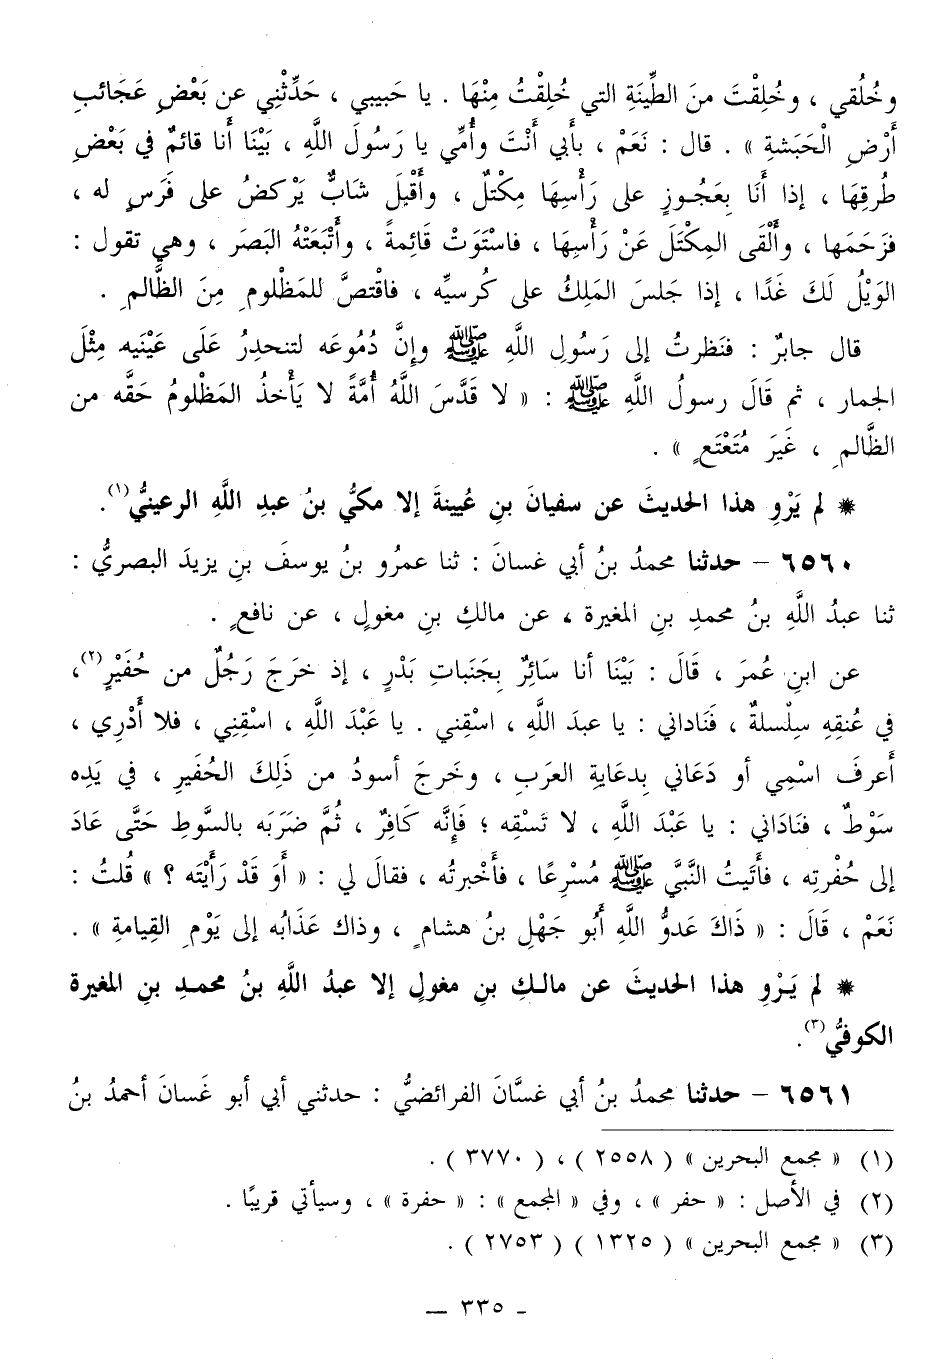 وخُلُقي ، وخُلِقْتَ منَ الطِّينَةِ التي خُلِقْتُ مِنْهَا . يا حَبيبي ، حَدِّثْنِي عن بَعْضِ عَجَائبِ
أَرْضِ الْحَبَشةِ » . قال : نَعَمْ ، بأبي أَنْتَ وأُمِّي يا رَسُولَ اللَّهِ ، بَيْنَا أَنا قائمٌ في بَعْضِ
طُرقِهَا ، إذا أَنَا بِعَجُوزٍ على رَأْسِهَا مِكْتلٌ ، وأَقْبلَ شَابٌّ يَرْكضُ على فَرَسٍ له ،
فزَحَمَها ، وأَلْقَى المِكْتَلَ عَنْ رَأْسِهَا ، فاسْتَوَتْ قَائِمةً ، وأَتْبَعَتْهُ البَصَر ، وهي تقول :
الوَيْلُ لَكَ غَدًا ، إذا جَلسَ المَلِكُ على كُرسيِّه ، فاقْتصَّ للمَظْلومِ مِنَ الظَّالمِ .
قال جابرٌ : فنَظرتُ إلى رَسُولِ اللَّهِ ﷺ وإِنَّ دُمُوعَه لتنحدِرُ عَلَى عَيْنَيه مِثْلَ
الجمار ، ثم قَالَ رسولُ اللَّهِ ﷺ : « لا قَدَّسَ اللَّهُ أُمَّةً لا يَأْخذُ المَظْلومُ حَقَّه من
الظَّالمِ ، غَيَرَ مُتَعْتَعٍ » .
* لم يَرْوِ هذا الحديثَ عن سفيانَ بنِ عُيينةَ إلا مكيُّ بنُ عبدِ اللَّهِ الرعينيُّ(١).
٦٥٦٠ – حدثنا محمدُ بنُ أبي غسانَ : ثنا عمرُو بنُ يوسفَ بنِ يزيدَ البصريُّ :
ثنا عبدُ اللَّهِ بنُ محمدِ بنِ المغيرة ، عن مالكِ بنِ مغولٍ ، عن نافعٍ .
عن ابنِ عُمرَ ، قَالَ : بَيْنَا أنا سَائِرٌ بِجَنَباتِ بَدْرٍ ، إذ خرَجَ رَجُلٌ من حُفَيْرٍ(٢)،
في عُنقِهِ سِلْسلةٌ ، فَنَاداني : يا عبدَ اللَّهِ ، اسْقِني . يا عَبْدَ اللَّهِ ، اسْقِنِي ، فلا أَدْرِي ،
أَعرفَ اسْمِي أو دَعَاني بِدعَايةِ العرَبِ ، وخَرجَ أسودُ من ذَلِكَ الحُفَيرِ ، في يَدِه
سَوْطٌ ، فنَادَاني : يا عَبْدَ اللَّهِ ، لا تَسْقِه ؛ فَإِنَّه كَافِرٌ ، ثُمَّ ضَرَبَه بالسَّوطِ حَتَّى عَادَ
إلى حُفْرتِه ، فأَتَيتُ النَّبيَّ ﷺ مُسْرِعًا ، فأَخْبرتُه ، فقالَ لي : « أَوَ قَدْ رَأَيْتَه ؟ » قُلتُ :
نَعَمْ ، قَالَ : « ذَاكَ عَدوُّ اللَّهِ أَبُو جَهْلِ بنُ هشامٍ ، وذاك عَذَابُه إلى يَوْمِ القِيامةِ » .
* لم يَرْوِ هذا الحديثَ عن مالكِ بنِ مغولٍ إلا عبدُ اللَّهِ بنُ محمدِ بنِ المغيرة
الكوفيُّ(٣).
٦٥٦١ – حدثنا محمدُ بنُ أبي غسَّانَ الفرائضيُّ : حدثني أبي أبو غَسانَ أحمدُ بنُ
(١) « مجمع البحرين » ( ٢٥٥٨ ) ، ( ٣٧٧٠ ) .
(٢) في الأصل : « حفر » ، وفي « المجمع » : « حفرة » ، وسيأتي قريبًا .
(٣) « مجمع البحرين » ( ١٣٢٥ ) ( ٢٧٥٣ ) .
- ٣٣٥ —